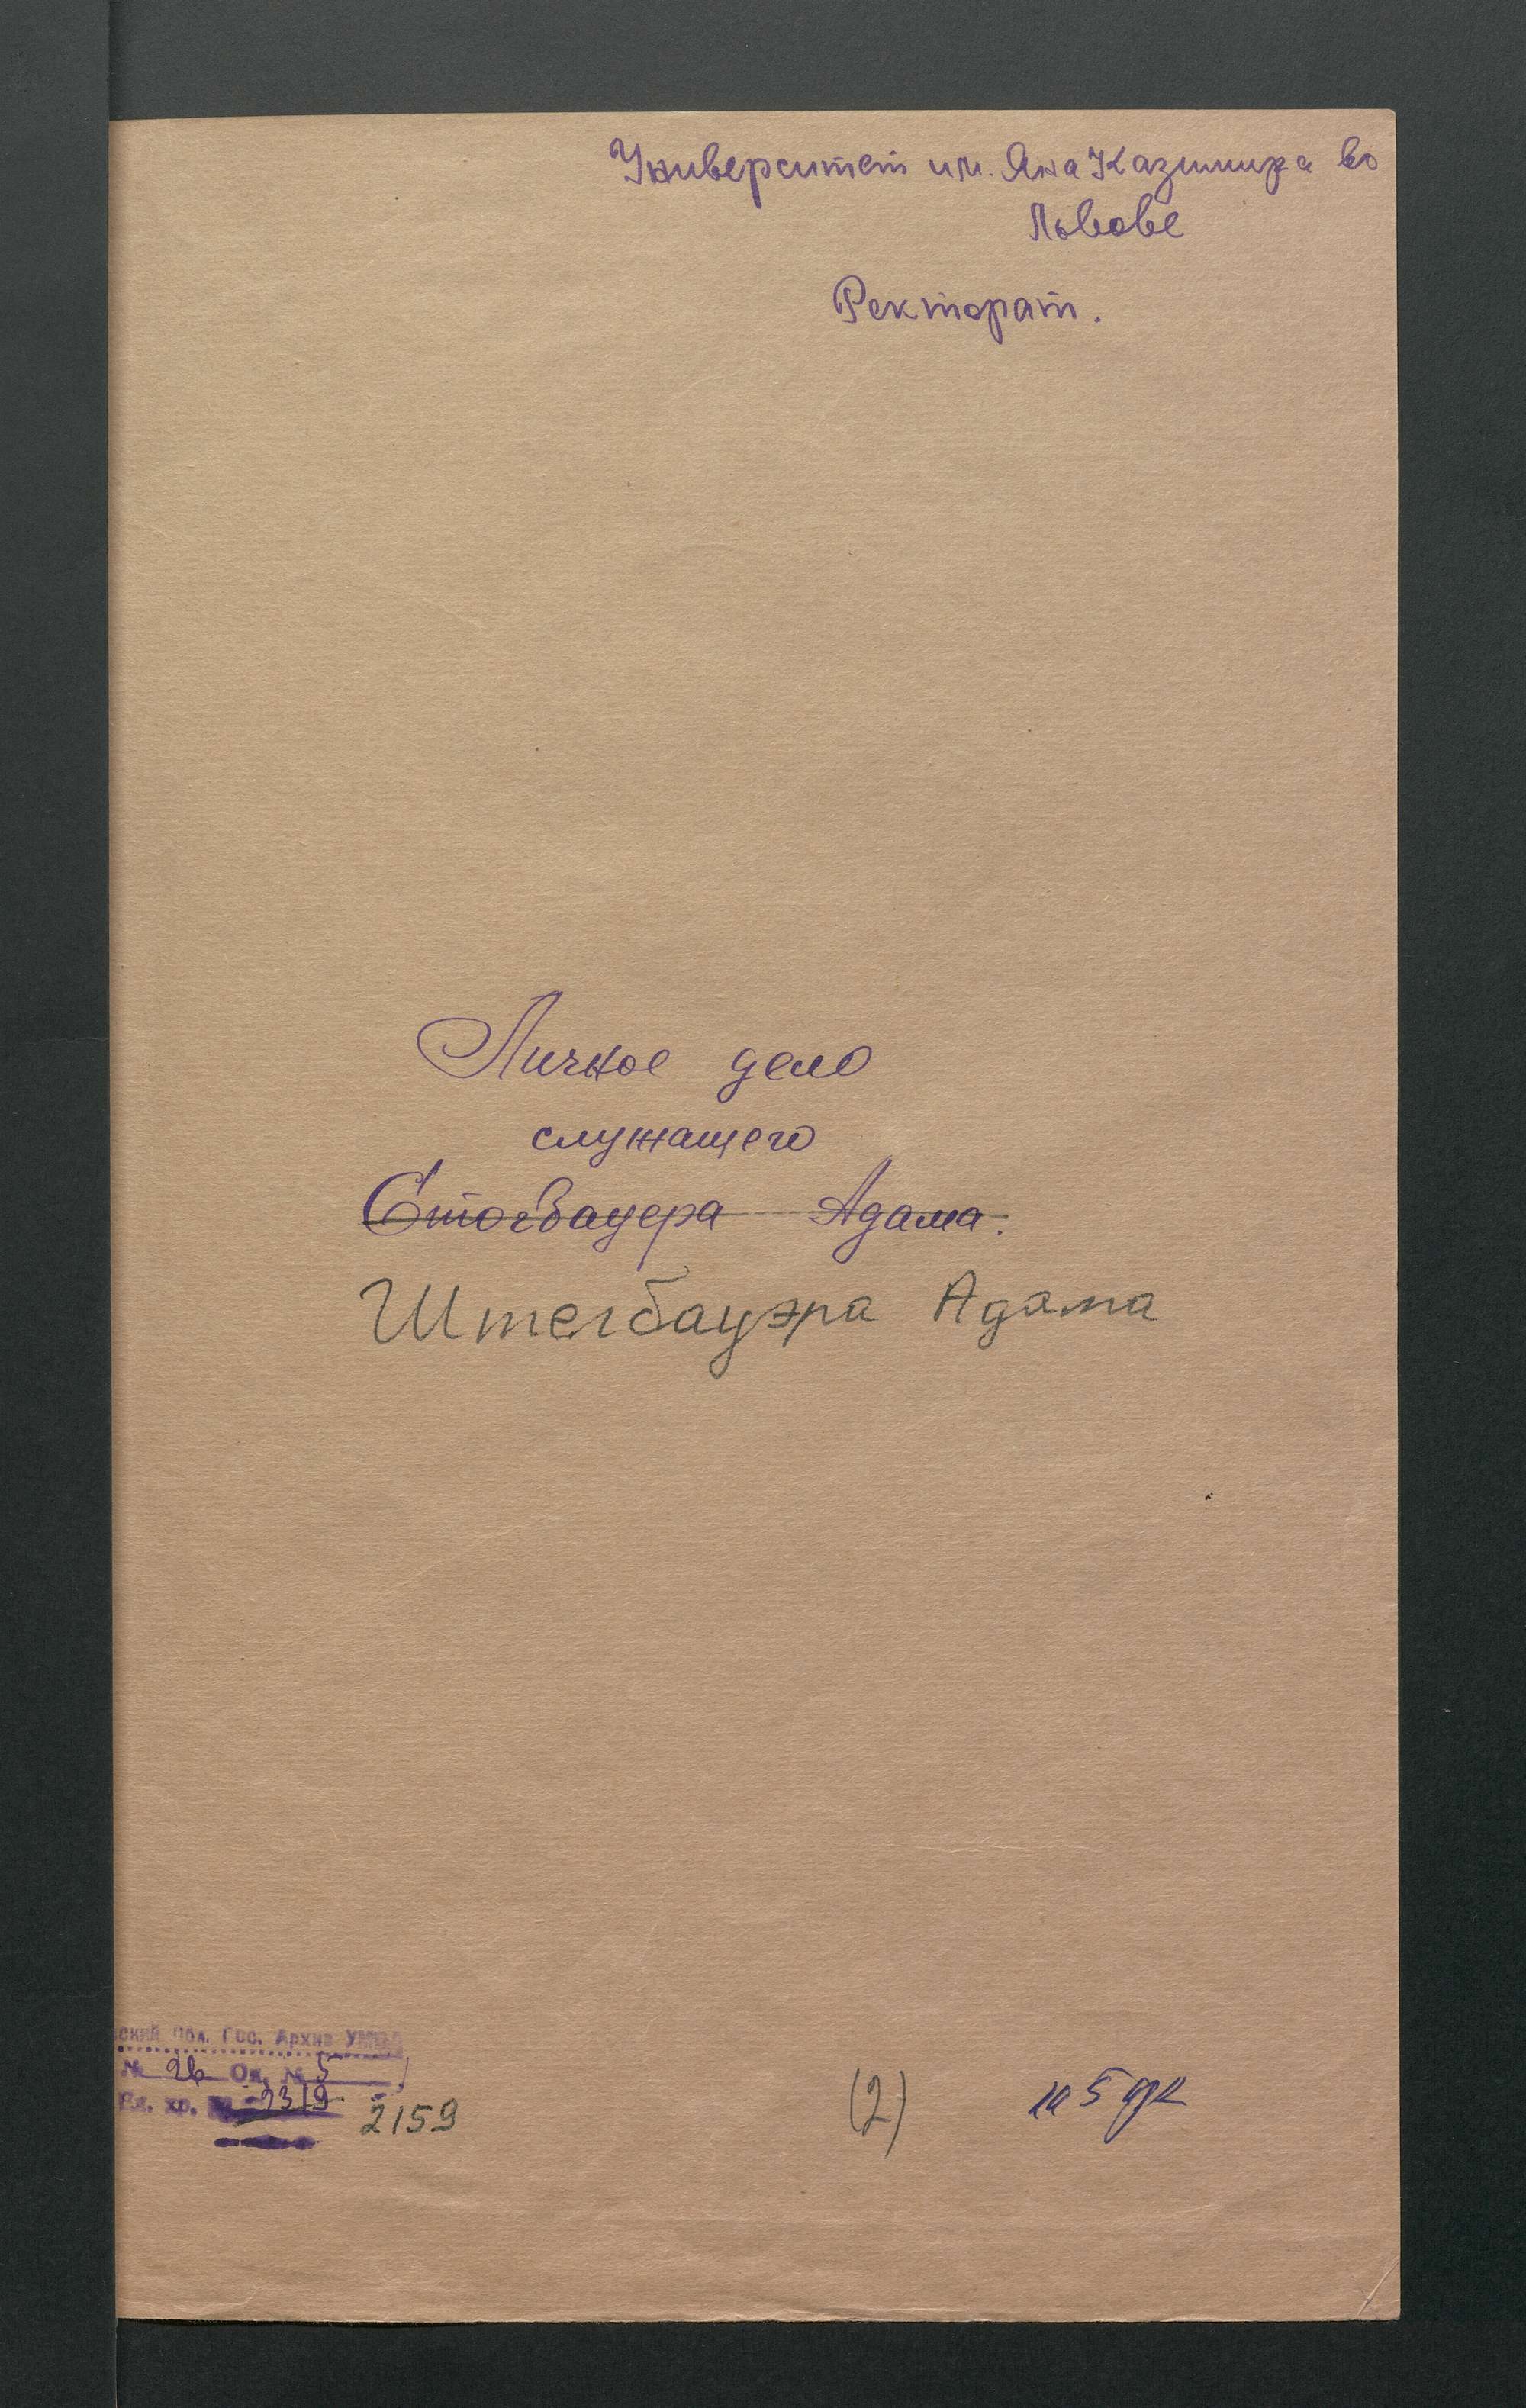 Университет им. Яна Казимира во
Львове
Ректорат.
Личное дело
служащего
Стогбауера Адама.
Штегбауэра Адама
ский Обл. Гос. Архив УМВД
№ 26 Оп. № 5
Ед. хр. 2319
2159
(2)
на 5